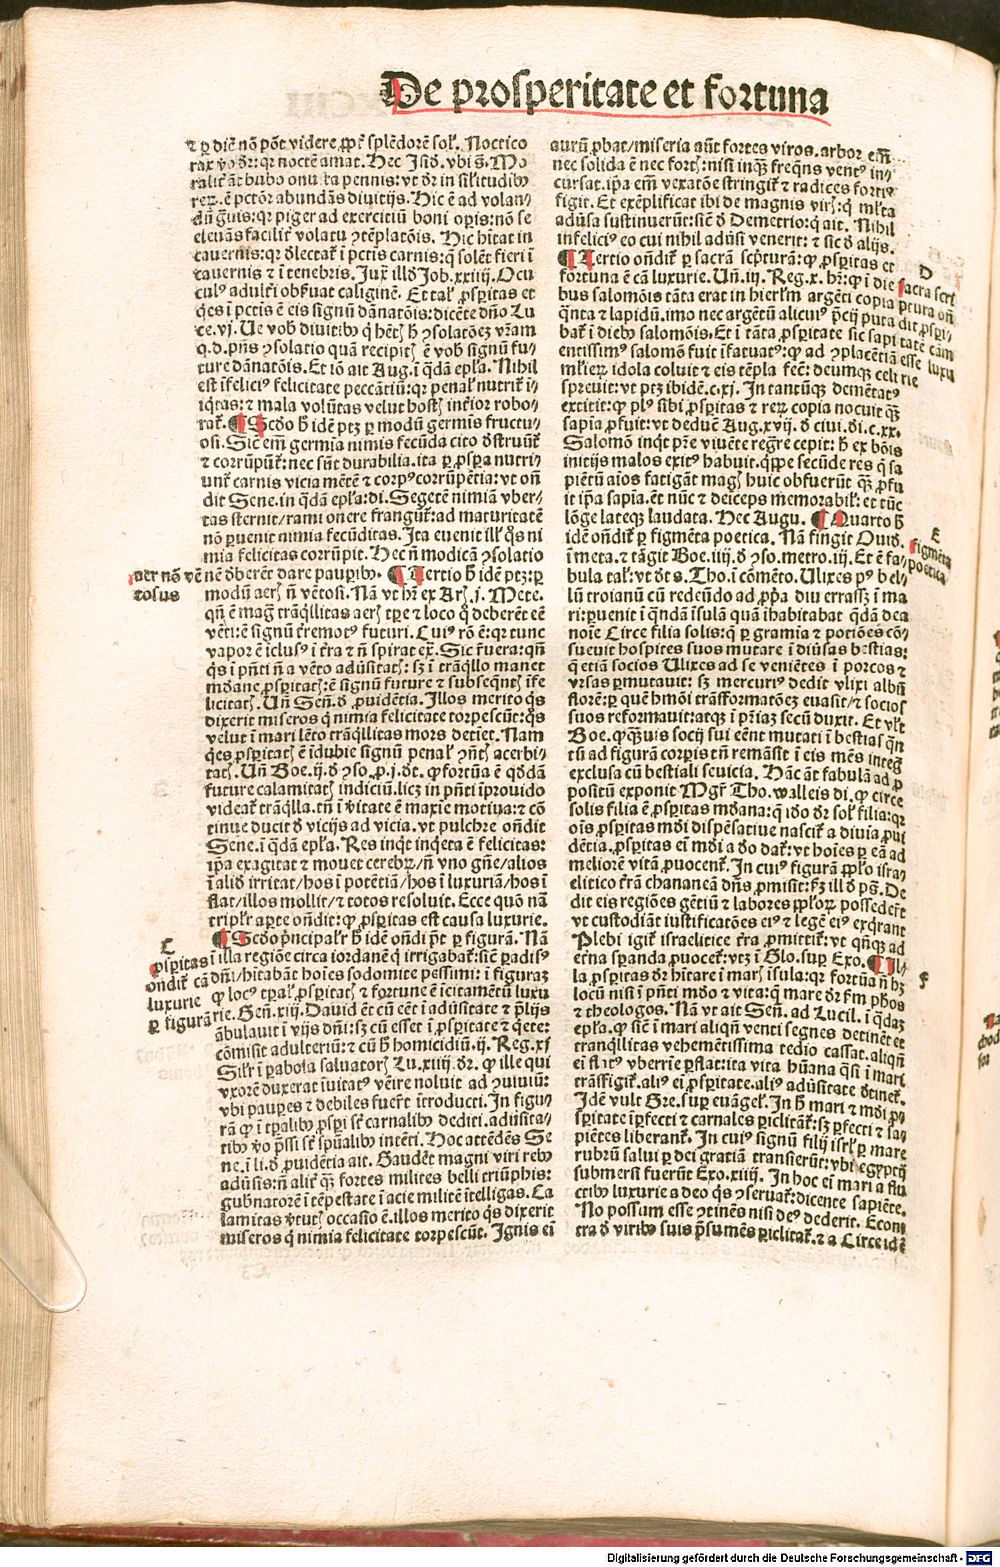 De prosperitate et fortuna
⁊ ꝑ diē nō pōt videre ꝓpt̄ splēdorē sol̕. Noctico
rax v̄o dr̄: qꝛ noctē amat. Hec Isid. vbi s̄. Mo
ralit̄ āt bubo onusta pennis: vt dr̄ in sil̕itudibꝰ
reꝝ. ē pctōr abundās diuitijs. Hic ē ad volan⸗
dū grauis: qꝛ piger ad exercitiū boni opis: nō se
eleuās facilit̄ volatu ꝯtēplatōis. Hic hitat in
cauernis: qꝛ dlectat̄ ī pctis carnis: q̄ solēt fieri ī
cauernis ⁊ ī tenebris. Jux̄ illd Job. xxiiij. Ocu
culꝰ adult̄i obs̄uat caliginē. Et tal̕ ꝓsperitas et
q̄es ī pctis ē eis signū dānatōis: dicēte dn̄o Lu
ce. vj. Ue vob diuitibꝰ q̄ hētis h̄ ꝯsolatōeꝫ vr̄am
q. d. pn̄s ꝯsolatio quā recipitis ē vob signū fu⸗
ture dānatōis. Et iō ait Aug. ī q̄dā epl̄a. Nihil
est īfeliciꝰ felicitate peccātiū: qꝛ penal̕ nutrit̄ ī⸗
iq̄tas: ⁊ mala volūtas velut hostis int̄ior robo⸗
rat̄. ¶ Scd̄o h̄ idē ptꝫ ꝑ modū germis fructu⸗
osi. Sic em̄ germia nimis fecūda cito dstruūt̄
⁊ corrūpūt̄: nec sūt durabilia. ita ꝑ ꝓspa nutri⸗
unt̄ carnis vicia mētē ⁊ corpꝰ corrūpētia: vt on̄
dit Sene. in q̄dā epl̄a: di. Segetē nimiā vber⸗
tas sternit/rami onere frangūt̄: ad maturitatē
nō ꝑuenit nimia fecūditas. Ita euenit ill̕ q̄s ni
mia felicitas corrūpit. Hec n̄ modicā ꝯsolatio
nē dberēt dare paupibꝰ. ¶ Tertio h̄ idē ptꝫ: ꝑ
aer nō vē
tosus
modū aeris n̄ vētosi. Nā vt hr̄ ex Aris. j. Mete.
qn̄ ē maḡ trāq̄llitas aeris tꝑe ⁊ loco q̄ deberēt eē
vēti: ē signū tr̄emotꝰ futuri. Cuiꝰ rō ē: qꝛ tunc
vapor ē īclusꝰ ī t̄ra ⁊ n̄ spirat ex̄. Sic r̄uera: qn̄
q̄s ī pn̄ti n̄ a vēto adūsitatis: sꝫ ī trāq̄llo manet
mdane ꝓspitatis: ē signū future ⁊ subseq̄ntis īfe
licitatis. Un̄ Sen̄. d ꝓuidētia. Illos merito q̄s
dixerit miseros q̄ nimia felicitate torpescūt: q̄s
velut ī mari lēto trāq̄litas mors detiet. Nam
q̄es ꝓspitatis ē īdubie signū penal̕ ꝯn̄tis acerbi⸗
tatis. Un̄ Boe. ij. d ꝯso. ꝓ. j. dt. ꝙ fortūa ē q̄ddā
future calamitatis indiciū. licꝫ in pn̄ti īprouido
videat̄ trāq̄lla. tn̄ ī v̄itate ē maxie motiua: ⁊ cō
tinue ducit d vicijs ad vicia. vt pulchre on̄dit
Sene. ī q̄dā epl̄a. Res inqt inq̄eta ē felicitas:
ip̄a exagitat ⁊ mouet cerebꝝ/n̄ vno gn̄e/alios
ī alid irritat/hos ī potētiā/hos ī luxuriā/hos ī
flat/illos mollit/⁊ totos resoluit. Ecce quō nā
tripl̕r aꝑte on̄dit: ꝙ ꝓspitas est causa luxurie.
¶ Scd̄o prīncipal̕r h̄ idē on̄di pt̄ ꝑ figurā. Nā
C
ꝓspitas
on̄dit̄ cā
luxurie
ꝑ figurā
ī illa regiōe circa iordanē q̄ irrigabat̄: siē ꝑadisꝰ
dn̄i/hitabāt hoīes sodomite pessimi: ī figuraꝫ
ꝙ locꝰ tp̄al̕ ꝓspitatis ⁊ fortune ē īcitamētū luxu
rie. Gen̄. xiij. Dauid ēt cū eēt ī adūsitate ⁊ p̄lijs
ābulauit ī vijs dn̄i: sꝫ cū esset ī ꝓspitate ⁊ q̄ete:
cōmisit adulteriū: ⁊ cū h̄ homicidiū. ij. Reg. xj
Silr̄ ī ꝑabola saluatoris Lu. xiiij. dr̄. ꝙ ille qui
vxorē duxerat īuitatꝰ vēire noluit ad ꝯuiuiū:
vbi pauꝑes ⁊ debiles fuer̄t ītroducti. In figu⸗
rā ꝙ ī tꝑalibꝰ ꝓspi st̄ carnalibꝰ dediti. adūsita⸗
tibꝰ v̄o p̄ssi st̄ spūalibꝰ intēti. Hoc attēdēs Se
ne. ī li. d ꝓuidētia ait. Gaudēt magni viri rebꝰ
adūsis: n̄ alit̄ q̄ꝫ fortes milites belli triūphis:
gubnatorē ī tēpestate ī acie militē ītelligas. Ca
lamitas v̄tutis occasio ē. illos merito q̄s dixerit
miseros q̄ nimia felicitate torpescūt. Ignis ei
aurū ꝓbat/miseria aūt fortes viros. arbor em̄
nec solida ē nec fortis: nisi in quā freq̄ns ventꝰ in⸗
cursat. ip̄a em̄ vexatōe stringit̄ ⁊ radices fortiꝰ
figit. Et exēplificat ibi de magnis viris: q̄ ml̄ta
adūsa sustinuerūt: siē d Demetrio: q̄ ait. Nihil
infeliciꝰ eo cui nihil adūsi venerit: ⁊ sic d alijs.
¶ Tertio on̄dit̄ ꝑ sacrā scpturā: ꝙ ꝓspitas et
D
sacra scri
ptura on̄
dit ꝓspi⸗
tatē cām
esse luxu
rie
fortuna ē cā luxurie. Un̄. iij. Reg. x. hr̄: ꝙ ī die
bus salomōis tāta erat in hierl̄m argēti copia
q̄nta ⁊ lapidū. imo nec argētū alicuiꝰ p̄cij puta
bat̄ ī diebꝰ salomōis. Et ī tāta ꝓspitate sic sapi
entissimꝰ salomō fuit īfatuatꝰ: ꝙ ad ꝯplacētiā
ml̕ieꝝ idola coluit ⁊ eis tēpla fec̄: deumqꝫ celi
spreuit: vt ptꝫ ibidē. c. xj. In tantūqꝫ demētatꝰ
extitit: ꝙ plꝰ sibi ꝓspitas ⁊ reꝝ copia nocuit q̄ꝫ
sapia ꝓfuit: vt deducit Aug. xvij. d ciui. di. c. xx.
Salomō inqt p̄ne viuēte regre cepit: h̄ ex bōis
initijs malos exitꝰ habuit. qꝑpe secūde res q̄ sa
piētū aīos fatigāt magis huic obfuerūt q̄ꝫ ꝓfu
it ip̄a sapia. ēt nūc ⁊ deiceps memorabil̕: et tūc
lōge lateqꝫ laudata. Hec Augu. ¶ Quarto h̄
E
figmēta
poetica
idē on̄dit̄ ꝑ figmēta poetica. Nā fingit Ouid.
ī meta. ⁊ tāgit Boe. iiij. d ꝯso. metro. iij. Et ē fa⸗
bula tal̕: vt dt s. Tho. ī cōmēto. Ulixes pꝰ bel⸗
lū troianū cū redeūdo ad ꝓp̄a diu errassꝫ ī ma
ri: ꝑuenit ī q̄ndā īsulā quā ihabitabat q̄dā dea
noīe Circe filia solis: q̄ ꝑ gramia ⁊ potiōes cō⸗
sueuit hospites suos mutare ī diūsas bestias:
q̄ etiā socios Ulixes ad se veniētes ī porcos ⁊
vrsas ꝑmutauit: sꝫ mercuriꝰ dedit vlixi albū
florē: ꝑ quē hmōi trāsformatōeꝫ euasit/⁊ socios
suos reformauit: atqꝫ ī p̄riaꝫ secū duxit. Et vlt̄
Boe. ꝙq̄uis socij sui eēnt mutati ī bestias q̄n
tū ad figurā corpis tn̄ remāsit ī eis mēs inteḡ
exclusa cū bestiali seuicia. Hāc āt fabulā ad ꝓ
positū exponit Mgr̄ Tho. walleis di. ꝙ circe
solis filia ē ꝓspitas mdana: q̄ ido dr̄ sol̕ filia: qꝛ
oīs ꝓspitas mdi dispēsatiue nascit̄ a diuia ꝓui
dētia. ꝓspitas ei mdi a do dat̄: vt hoīes ꝑ eā ad
meliorē vitā ꝓuocent̄. In cuiꝰ figurā ppl̄o isra⸗
elitico t̄rā chananeā dn̄s ꝓmisit: scꝫ ill d ps̄. De
dit eis regiōes gētiū ⁊ labores ppl̄oꝝ possedert̄
vt custodiāt iustificatōes eiꝰ ⁊ legē eiꝰ exq̄rant
Plebi igit̄ israelitice t̄rra ꝓmittit̄: vt qn̄qꝫ ad
et̄na speranda ꝓuocet̄: vtꝫ ī Glo. sup Exo. ¶ Il⸗
F
la ꝓspitas dr̄ hitare ī maris īsula: qꝛ fortūa n̄ hꝫ
locū nisi ī pn̄ti mdo ⁊ vita: q̄ mare dr̄ fm̄ phōs
⁊ theologos. Nā vt ait Sen̄. ad Lucil. ī q̄daꝫ
epl̄a. ꝙ siē ī mari aliqn̄ venti segnes detinēt et
tranq̄litas vehemētissima tedio cassat. aliqn̄
ei flatꝰ vberrie ꝑflat: ita vita hūana q̄si ī mari
trāsfigit̄. aliꝰ ei ꝓspitate. aliꝰ adūsitate dtinet̄.
Idē vult Gre. sup euāgel̕. In h̄ mari ⁊ mdi ꝓ⸗
spitate īpfecti ⁊ carnales ꝑiclitāt̄: sꝫ ꝑfecti ⁊ sa⸗
piētes liberant̄. In cuiꝰ signū filij isrl̄ ꝑ mare
rubrū salui ꝑ dei gratiā transierūt: vbi egyptij
submersi fuerūt Exo. xiiij. In hoc ei mari a flu
ctibꝰ luxurie a deo q̄s ꝯseruat̄: dicente sapiēte.
No possum esse ꝯtinēs nisi deꝰ dederit. Econ⸗
tra d viribꝰ suis p̄sumēs ꝑiclitat̄. ⁊ a Circe idē
Digitalisierung gefördert durch die Deutsche Forschungsgemeinschaft - DFG